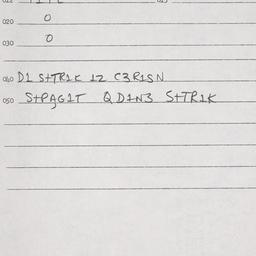 020 O
030 O
040 D1 StTR1K 12 C3R1SN
050 StPAG1T Q D1N3 StTR1K